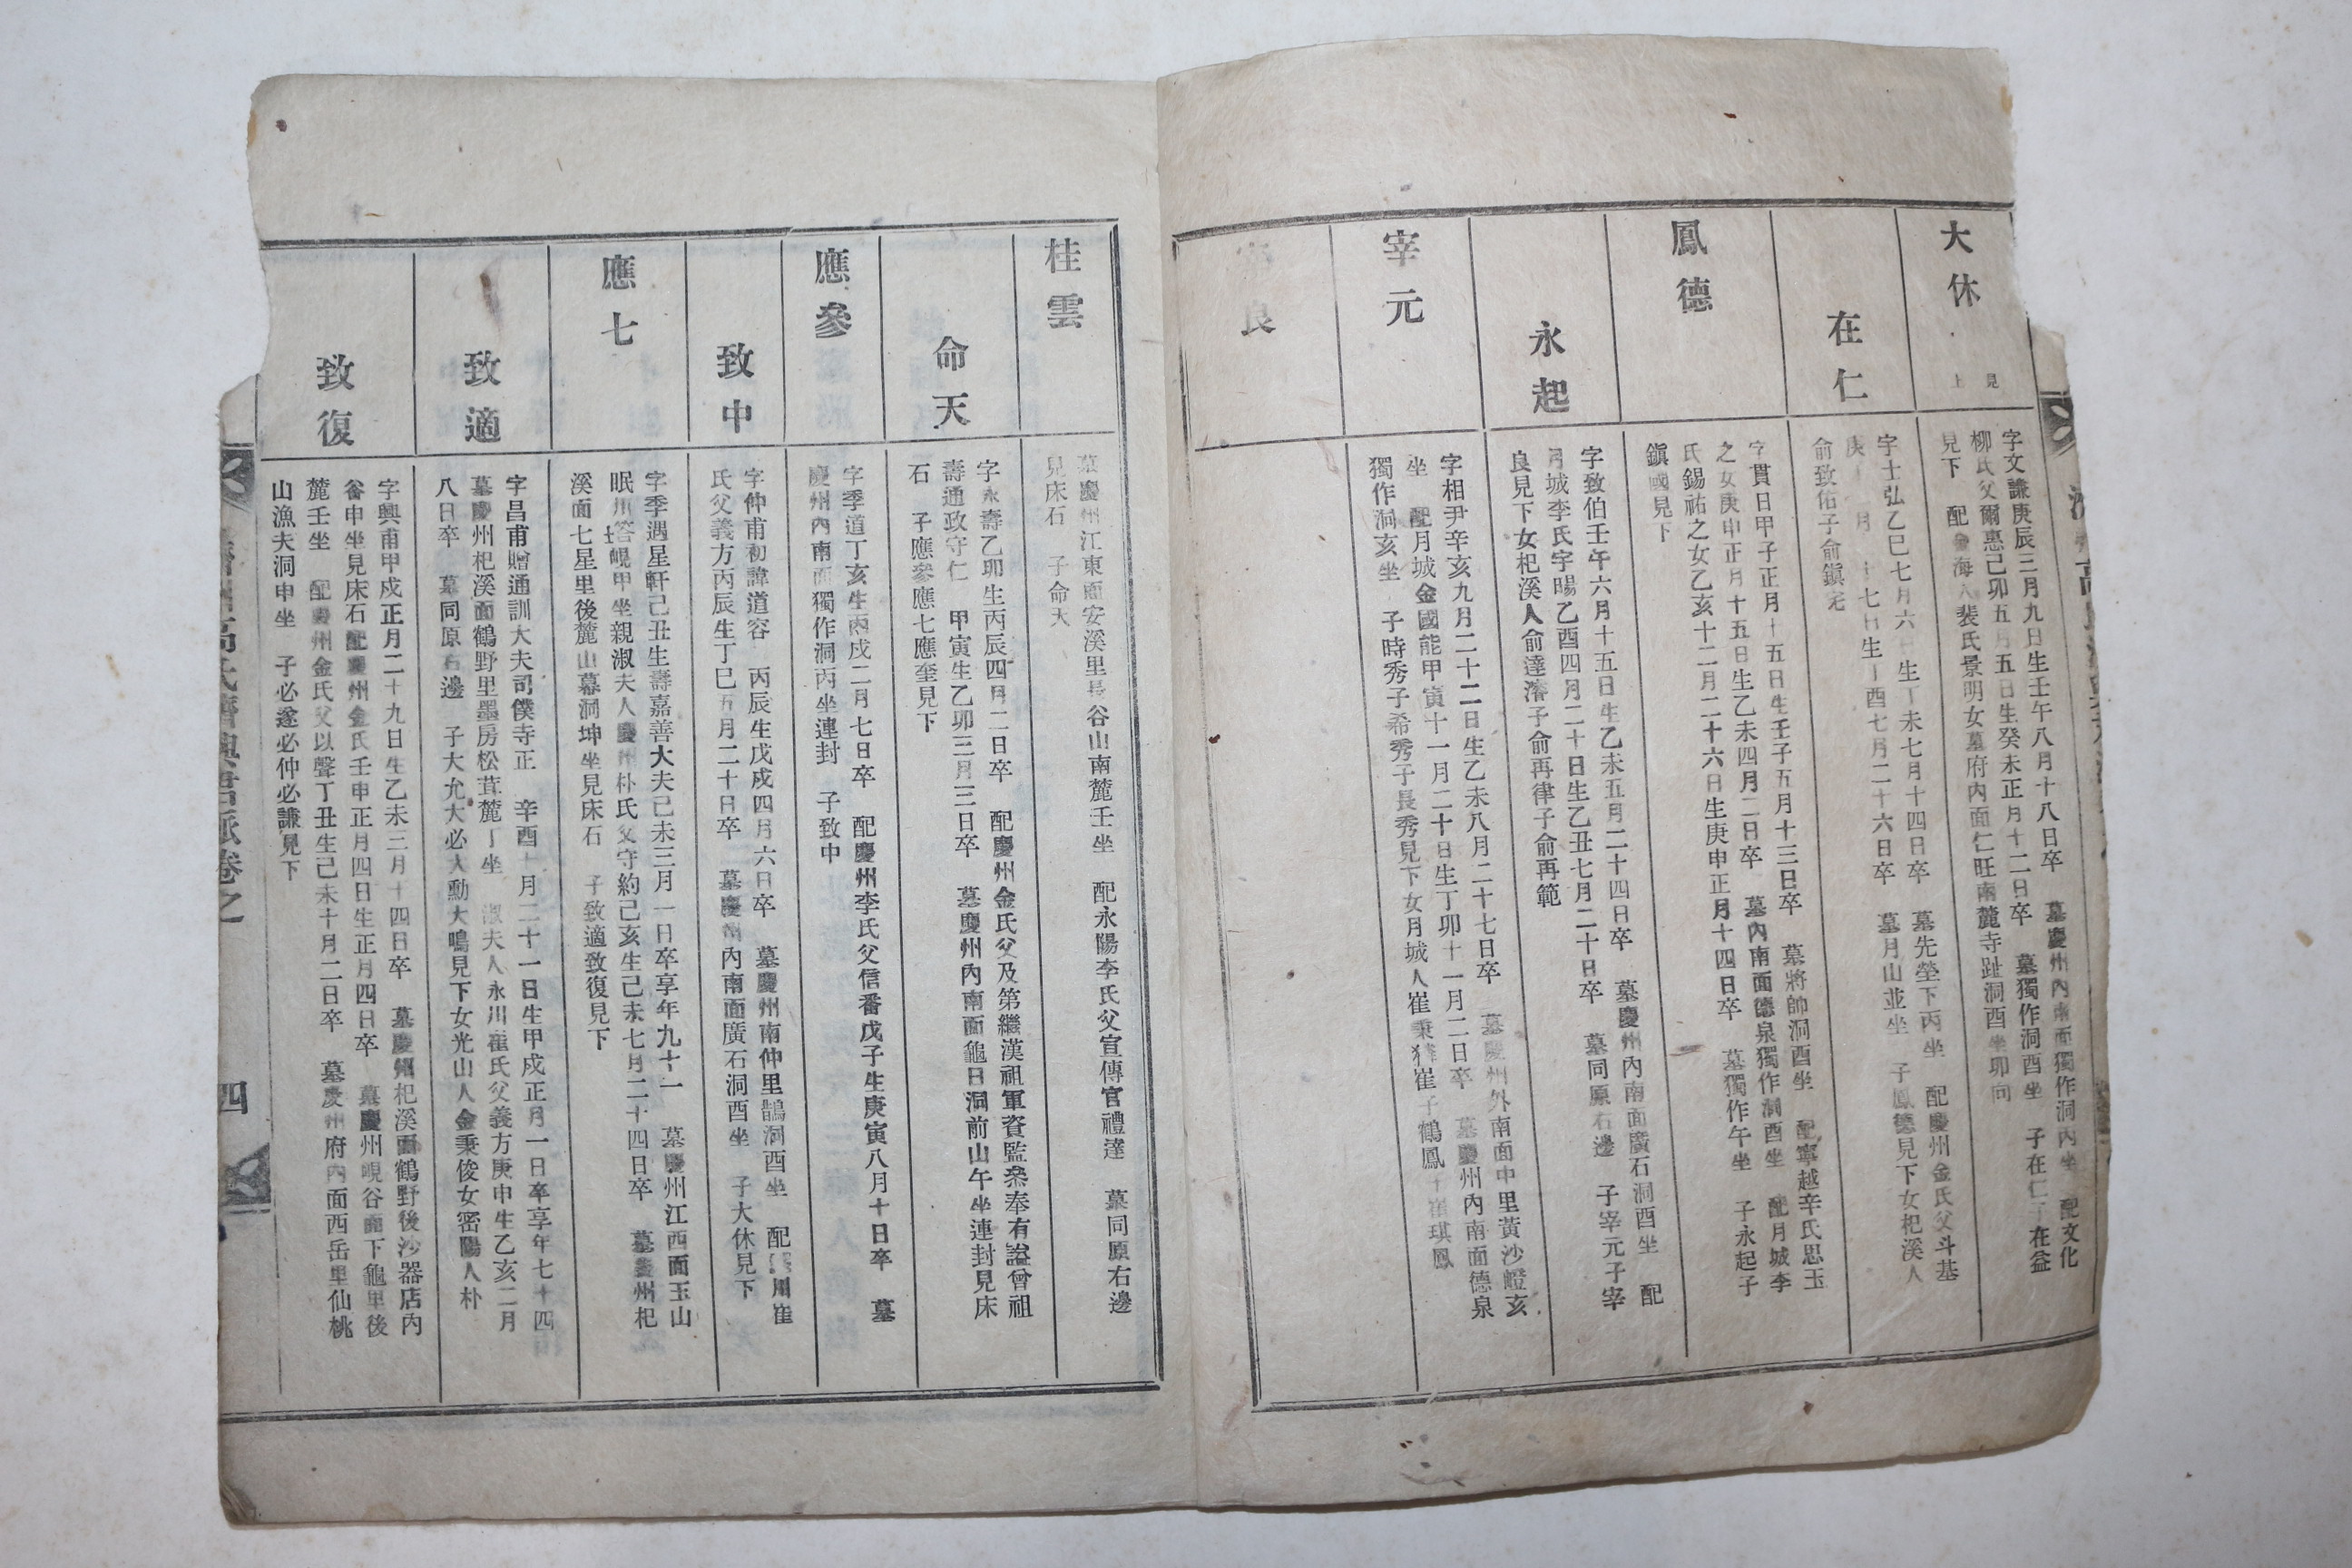 大休
見上
字文謙庚辰三月九日生壬午八月十八日卒　墓慶州內南面獨作洞內坐　配文化
柳氏父爾惠己卯五月五日生癸未正月十二日卒　墓獨作洞酉坐　子在仁子在益
見下　配　海人裴氏景明女墓府內面仁旺南麓寺趾洞酉坐卯向
在仁
字士弘乙巳七月六日生丁未七月十四日卒　墓先塋下丙坐　配慶州金氏父斗基
庚　月　七日生丁酉七月二十六日卒　墓月山並坐　子鳳德見下女杞溪人
俞致佑子俞鎭完
鳳德
字貫日甲子正月十五日生壬子五月十三日卒　墓將帥洞酉坐　配寧越辛氏思玉
之女庚申正月十五日生乙未四月二日卒　墓內南面德泉獨作洞酉坐　配月城李
氏錫祐之女乙亥十二月二十六日生庚申正月十四日卒　墓獨作午坐　子永起子
鎭國見下
永起
字致伯壬午六月十五日生乙未五月二十四日卒　墓慶州內南面廣石洞酉坐　配
月城李氏宇暘乙酉四月二十日生乙丑七月二十日卒　墓同原右邊　子宰元子宰
良見下女杞溪人俞達濬子俞再律子俞再範
宰元
字相尹辛亥九月二十二日生乙未八月二十七日卒　墓慶州外南面中里黃沙嶝亥
坐　配月城金國能甲寅十一月二十日生丁卯十一月二日卒　墓慶州內南面德泉
獨作洞亥坐　子時秀子希秀子長秀見下女月城人崔秉　崔子鶴鳳子崔琪鳳
宰良
桂雲
墓慶州江東面安溪里長谷山南麓壬坐　配永陽李氏父宣傳官禮達　墓同原右邊
見床石　子命天
命天
字永壽乙卯生丙辰四月二日卒　配慶州金氏父及第繼漢祖軍資監叅奉有謚曾祖
壽通政守仁　甲寅生乙卯三月三日卒　墓慶州內南面龜日洞前山午坐連封見床
石　子應參應七應奎見下
應參
字季道丁亥生丙戌二月七日卒　配慶州李氏父信番戊子生庚寅八月十日卒　墓
慶州內南面獨作洞丙坐連封　子致中
致中
字仲甫初諱道容　丙辰生戊戌四月六日卒　墓慶州南仲里鵲洞酉坐　配　川崔
氏父義方丙辰生丁巳五月二十日卒　墓慶州內南面廣石洞酉坐　子大休見下
應七
字季遇星軒己丑生壽嘉善大夫己未三月一日卒享年九十一　墓慶州江西面玉山
眠川峴甲坐親淑夫人慶州朴氏父守約己亥生己未七月二十四日卒　墓慶州杞
溪面七星里後麓山墓洞坤坐見床石　子致適致復見下
致適
字昌甫贈通訓大夫司僕寺正　辛酉十月二十一日生甲戌正月一日卒享年七十四
墓慶州杞溪面鶴野里墨房松茸麓丁坐　淑夫人永川崔氏父義方庚申生乙亥二月
八日卒　墓同原右邊　子大允大必大勳大鳴見下女光山人金秉俊女密陽人朴
致復
字興甫甲戌正月二十九日生乙未三月十四日卒　墓慶州杞溪面鶴野後沙器店內
谷申坐見床石配慶州金氏壬申正月四日生正月四日卒　墓慶州峴谷面下龜里後
麓壬坐　配慶州金氏父以聲丁丑生己未十月二日卒　墓慶州府內面西岳里仙桃
山漁夫洞申坐　子必遂必仲必謙見下
濟州高氏濟興君派卷之
四